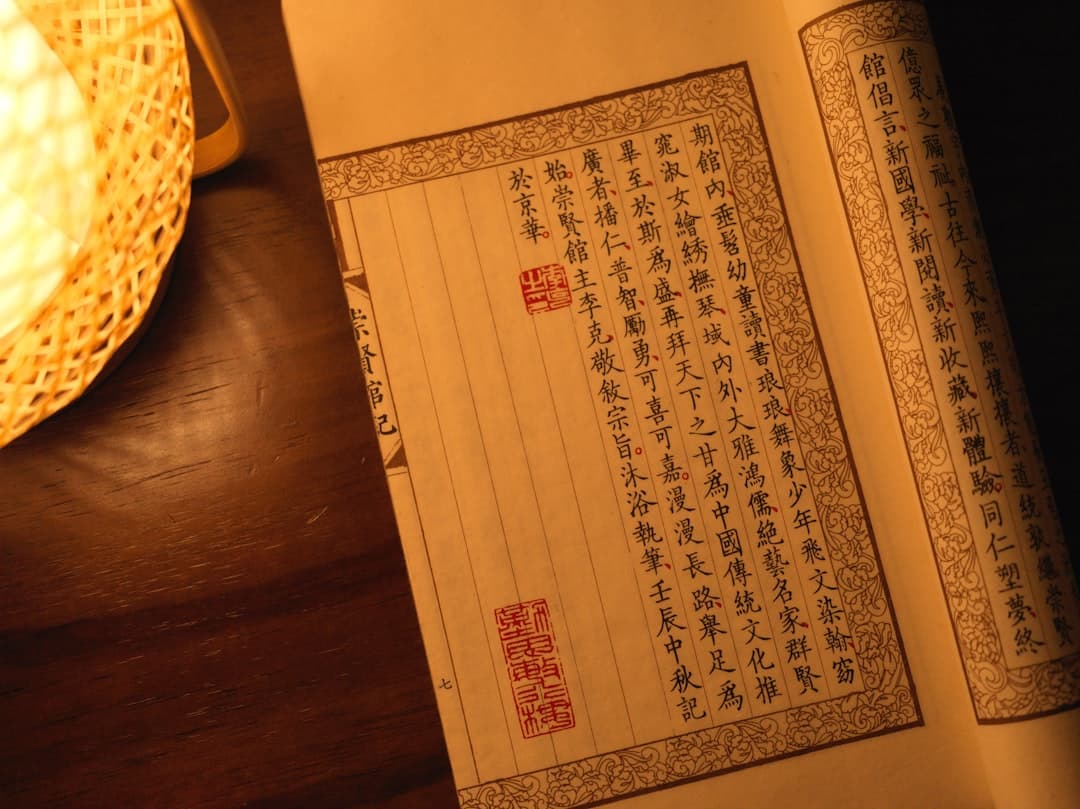 億眾之福祉、古往今來、熙熙攘攘者、道統敦繼、崇賢
館倡言、新國學、新閱讀、新收藏、新體驗。同仁塑夢、終
期館內、垂髫幼童讀書琅琅、舞象少年飛文染翰、窈
窕淑女繪綉撫琴、域內外大雅鴻儒、絕藝名家、群賢
畢至、於斯為盛、再拜天下之甘為中國傳統文化推
廣者、播仁、普智、勵勇、可喜可嘉。漫漫長路、舉足為
始。崇賢館主李克敬敘宗旨。沐浴執筆、壬辰中秋記
於京華。
崇賢館記
七